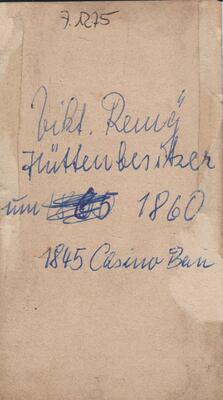 7.1275
Vikt. Remÿ
Hüttenbesitzer
um 1860
1845 Casino Bau